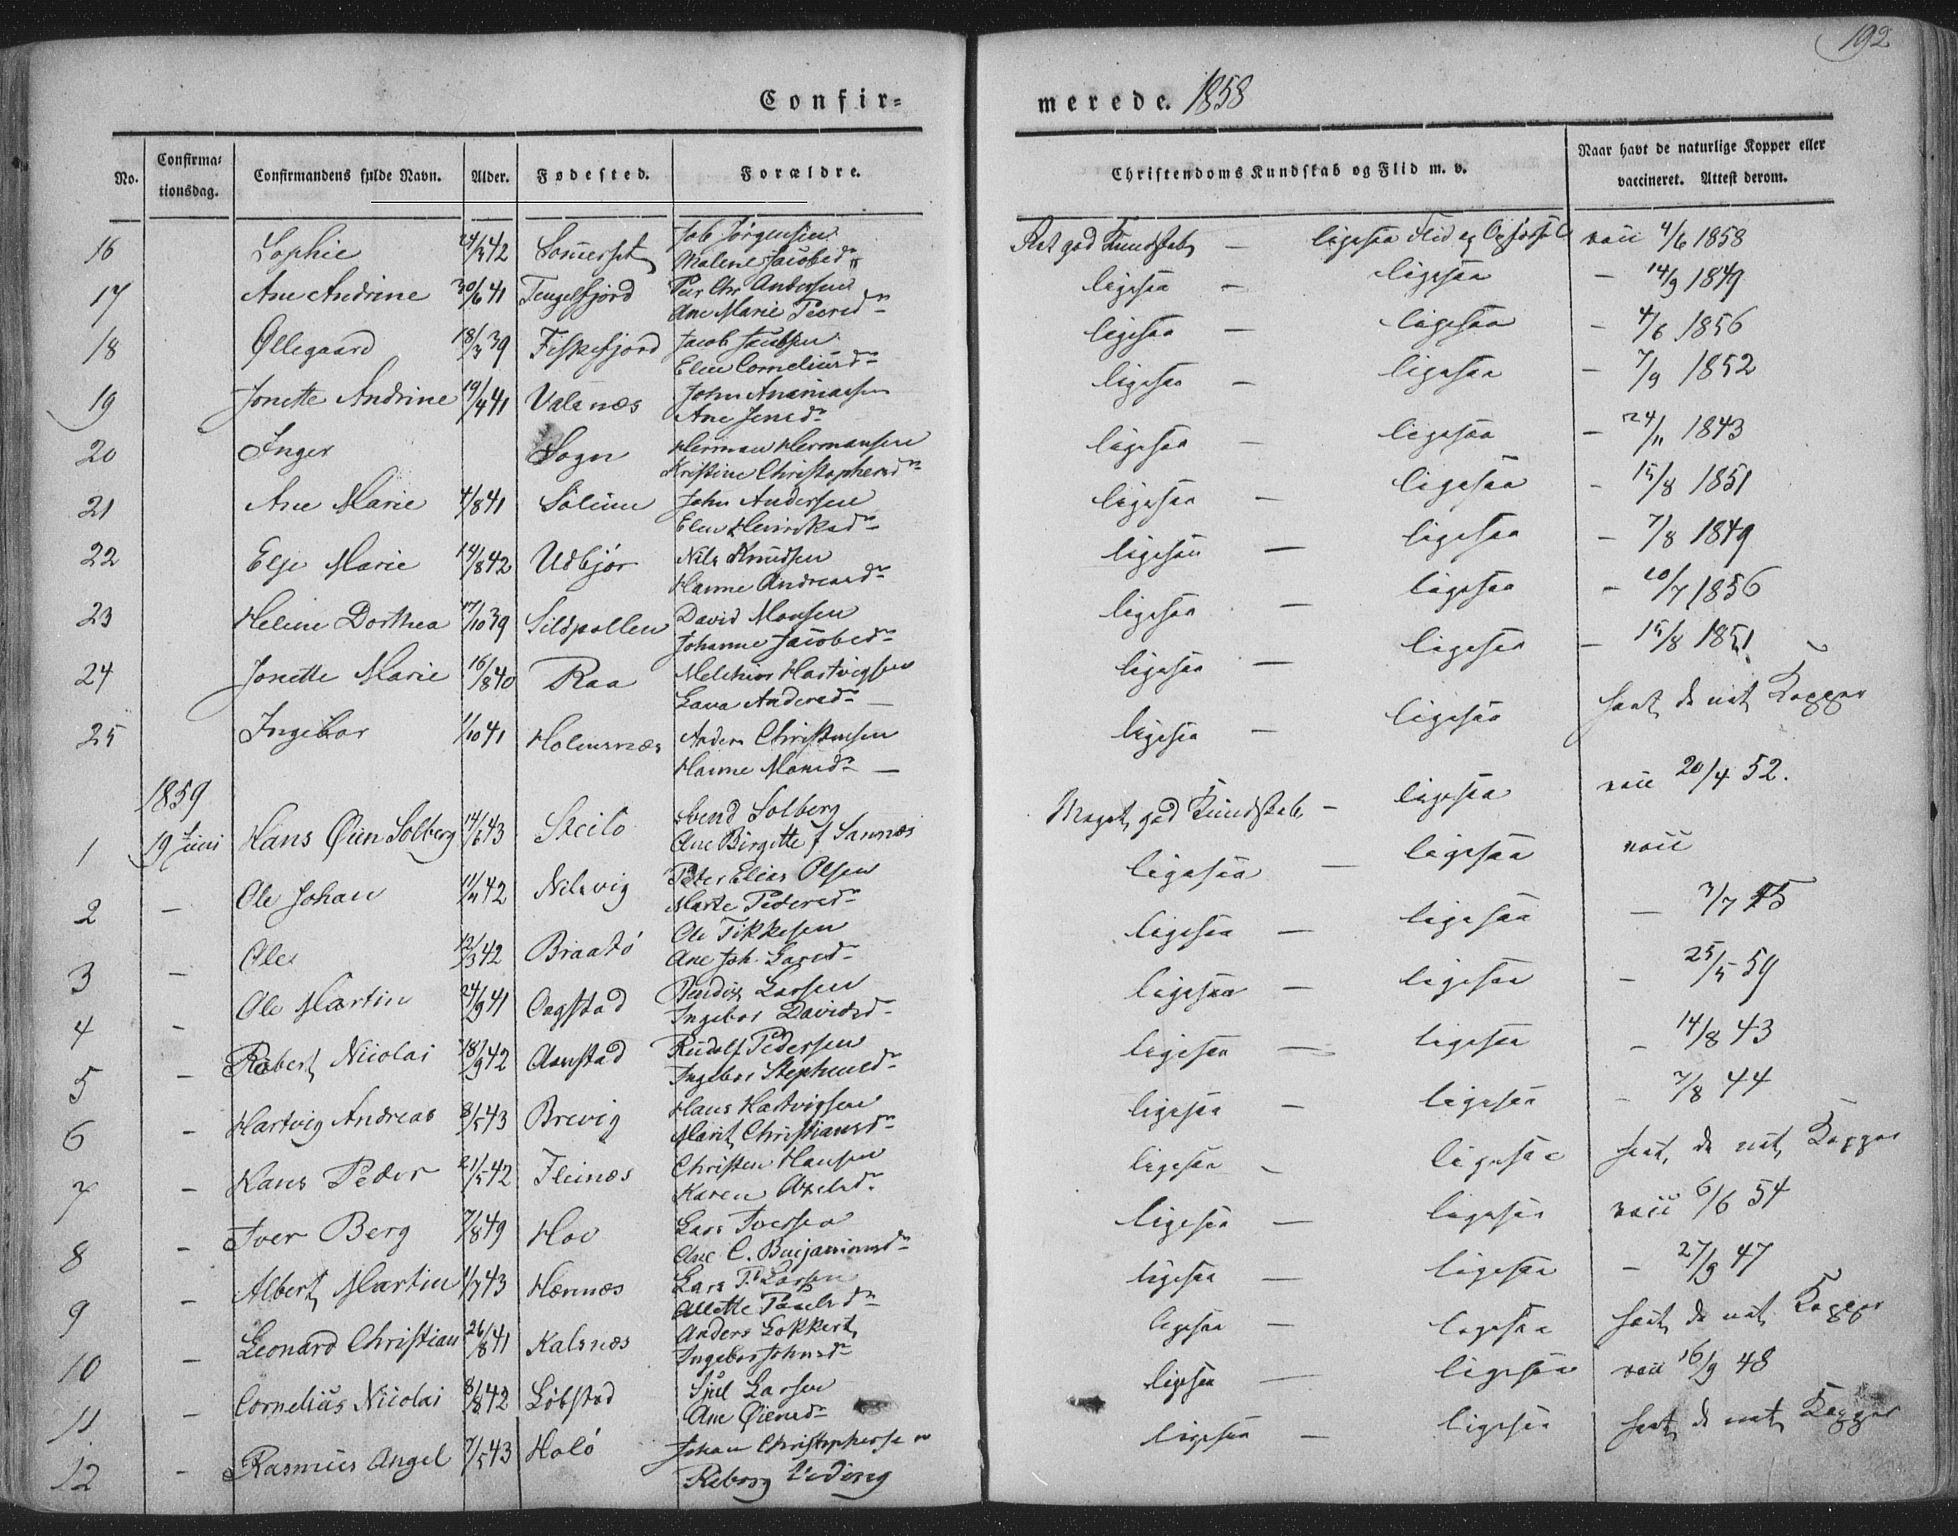 192
Confir-
merede. 1858
No. Confirma- tionsdag. Confirmandens fulde Navn. Alder. Fødested. Forældre. Christendoms Kundskab og Flid m. v. Naar havt de naturlige Kopper eller vaccineret. Attest derom.
16 Sophie 42 Somerset Job Jørgensen Malene Jacobsdr god Kundskab — ligesaa Flid og vacc 4/6 1858
17 Ane Andrine 30/6 41 Tengelfjord Andersen Ane Marie Peersdr ligesaa — ligesaa — 14/9 1849
18 Øllegaard 18/3 39 Fiskefjord Jacob Jacobsen Elen Corneliusdr ligesaa — ligesaa — 4/6 1856
19 Jonette Andrine 19/4 41 Valsnæs John Ananiassen Ane Jensdr ligesaa — ligesaa — 7/9 1852
20 Inger Sogn Herman Hermansen Kristine Christophersdr ligesaa — ligesaa — 24/11 1843
21 Ane Marie 4/8 41 John Andersen Elen ligesaa — ligesaa — 15/8 1851
22 Elje Marie 14/8 42 Udbjør Nils Knudsen Hanne Andreasdr ligesaa — ligesaa — 7/8 1849
23 Heline Dorthea 17/10 39 Sildpollen David Monsen Johanne Jacobsdr ligesaa — ligesaa — 20/7 1856
24 Jonette Marie 16/8 40 Raa Melchior Hartvigsen Lava Andersdr — ligesaa — ligesaa — 15/8 1851
25 Ingebor 1/10 41 Holmsnæs Anders Christensen Hanne Monsdr — ligesaa — ligesaa havt de nat. Kopper
1859
1 19 Juni Hans Solberg 14/5 43 Steilo Svend Solberg Ane Birgitte f Sannæs Meget god Kundskab — ligesaa vacc 20/4 52.
2 — Ole Johan 11/11 42 Nilsvig Peter Elias Olsen Marte Pedersdr ligesaa — ligesaa vacc
3 — Ole 12/3 42 Braatø Ole Tikkesen Ane Joh. Larsdr ligesaa — ligesaa — 3/7 45
4 — Ole Martin 24/9 41 Ongstad Bendix Larsen Ingebor Davidsd. ligesaa — ligesaa — 25/5 59
5 — Robert Nicolai 18/9 42 Aanstad Rudolf Pedersen Ingebor Stephensdr ligesaa — ligesaa — 14/8 43
6 — Hartvig Andreas 8/5 43 Brevig Hans Hartvigsen Marit Christiansdr ligesaa — ligesaa — 7/8 44
7 — Hans Peder 21/5 42 Fleinæs Christen Hansen Karen Axelsdr. ligesaa — ligesaa havt de nat. Kopper
8 — Iver Berg 7/8 49 Hov Lars Iversen Ane C. Benjaminsdr ligesaa — ligesaa vacc 6/6 54
9 — Albert Martin 1/7 43 Hennæs Lars P. Larsen Alette Paulsdr ligesaa — ligesaa — 27/9 47
10 — Leonard Christian 26/8 41 Kalsnæs Anders Lokkert Ingebor Johnsdr ligesaa — ligesaa havt de nat. Kopper
11. — Cornelius Nicolai 8/8 42 Løbstad Sjul Larsen Ane Øiensdr ligesaa — ligesaa vacc 16/9 48
12 — Rasmus Angel 7/5 43 Holø Johan Christophersen Reborg Viding ligesaa — ligesaa havt de nat. Kopper